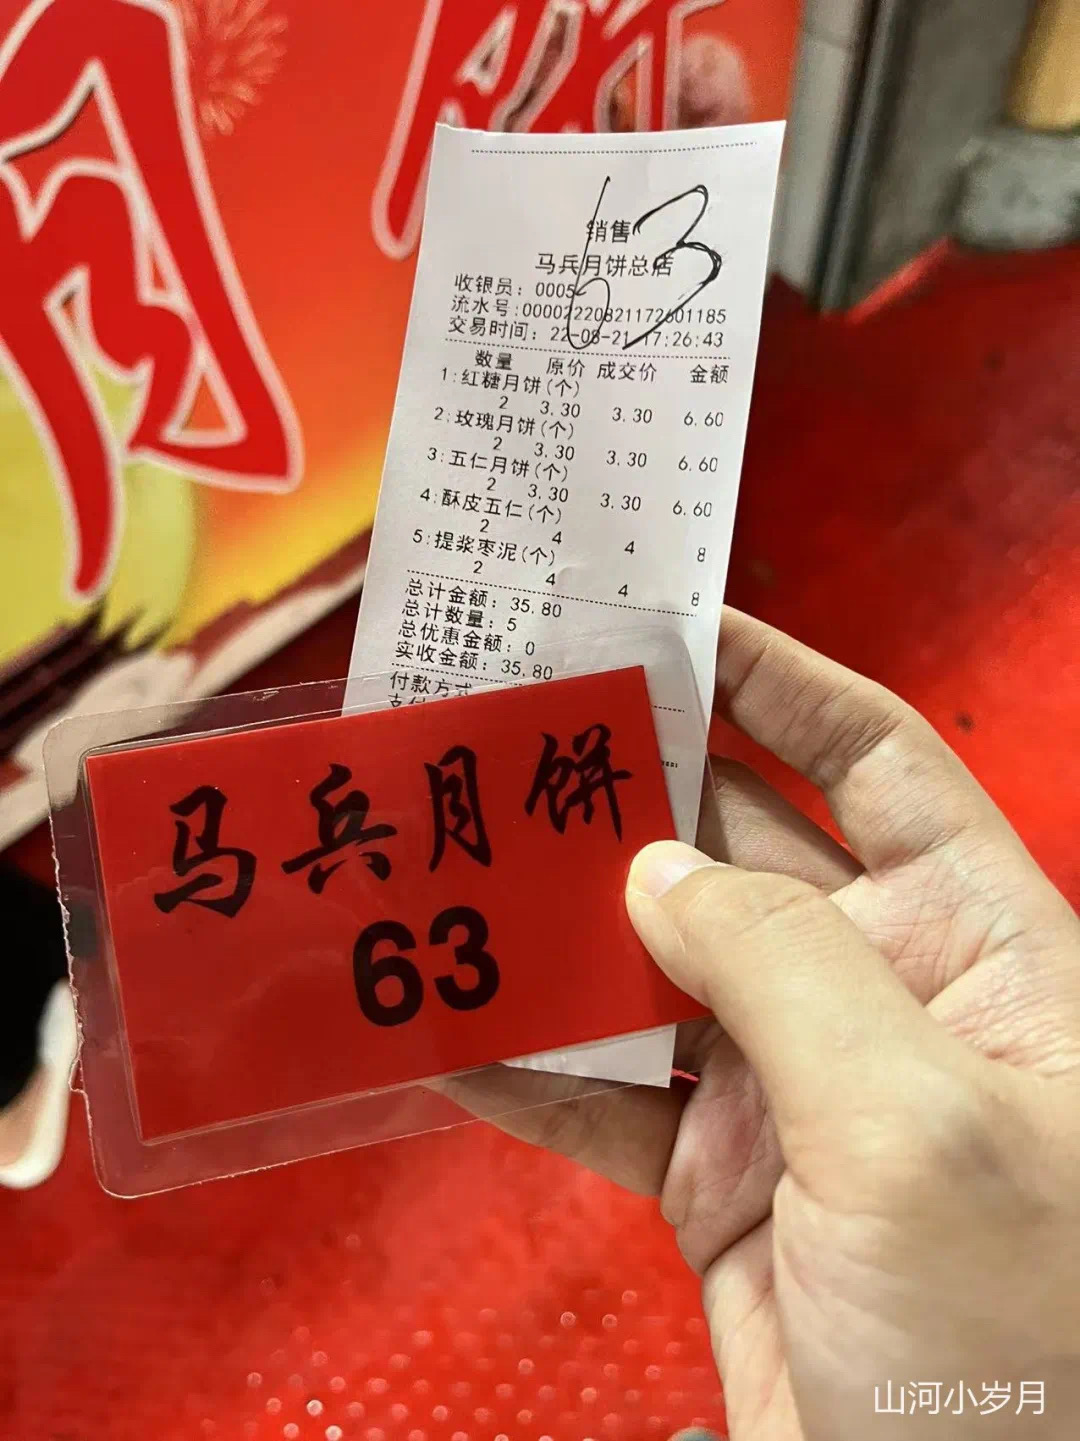 月饼
63
销售
马兵月饼总店
收银员：0005
流水号:0000222082117260​1185
交易时间：22-08-21 17:26:43
数量 原价 成交价 金额
1:红糖月饼(个)
2 3.30 3.30 6.60
2:玫瑰月饼(个)
2 3.30 3.30 6.60
3:五仁月饼(个)
2 3.30 3.30 6.60
4:酥皮五仁(个)
2 4 4 8
5:提浆枣泥(个)
2 4 4 8
总计金额：35.80
总计数量：5
总优惠金额：0
实收金额：35.80
付款方式
马兵月饼
63
山河小岁月